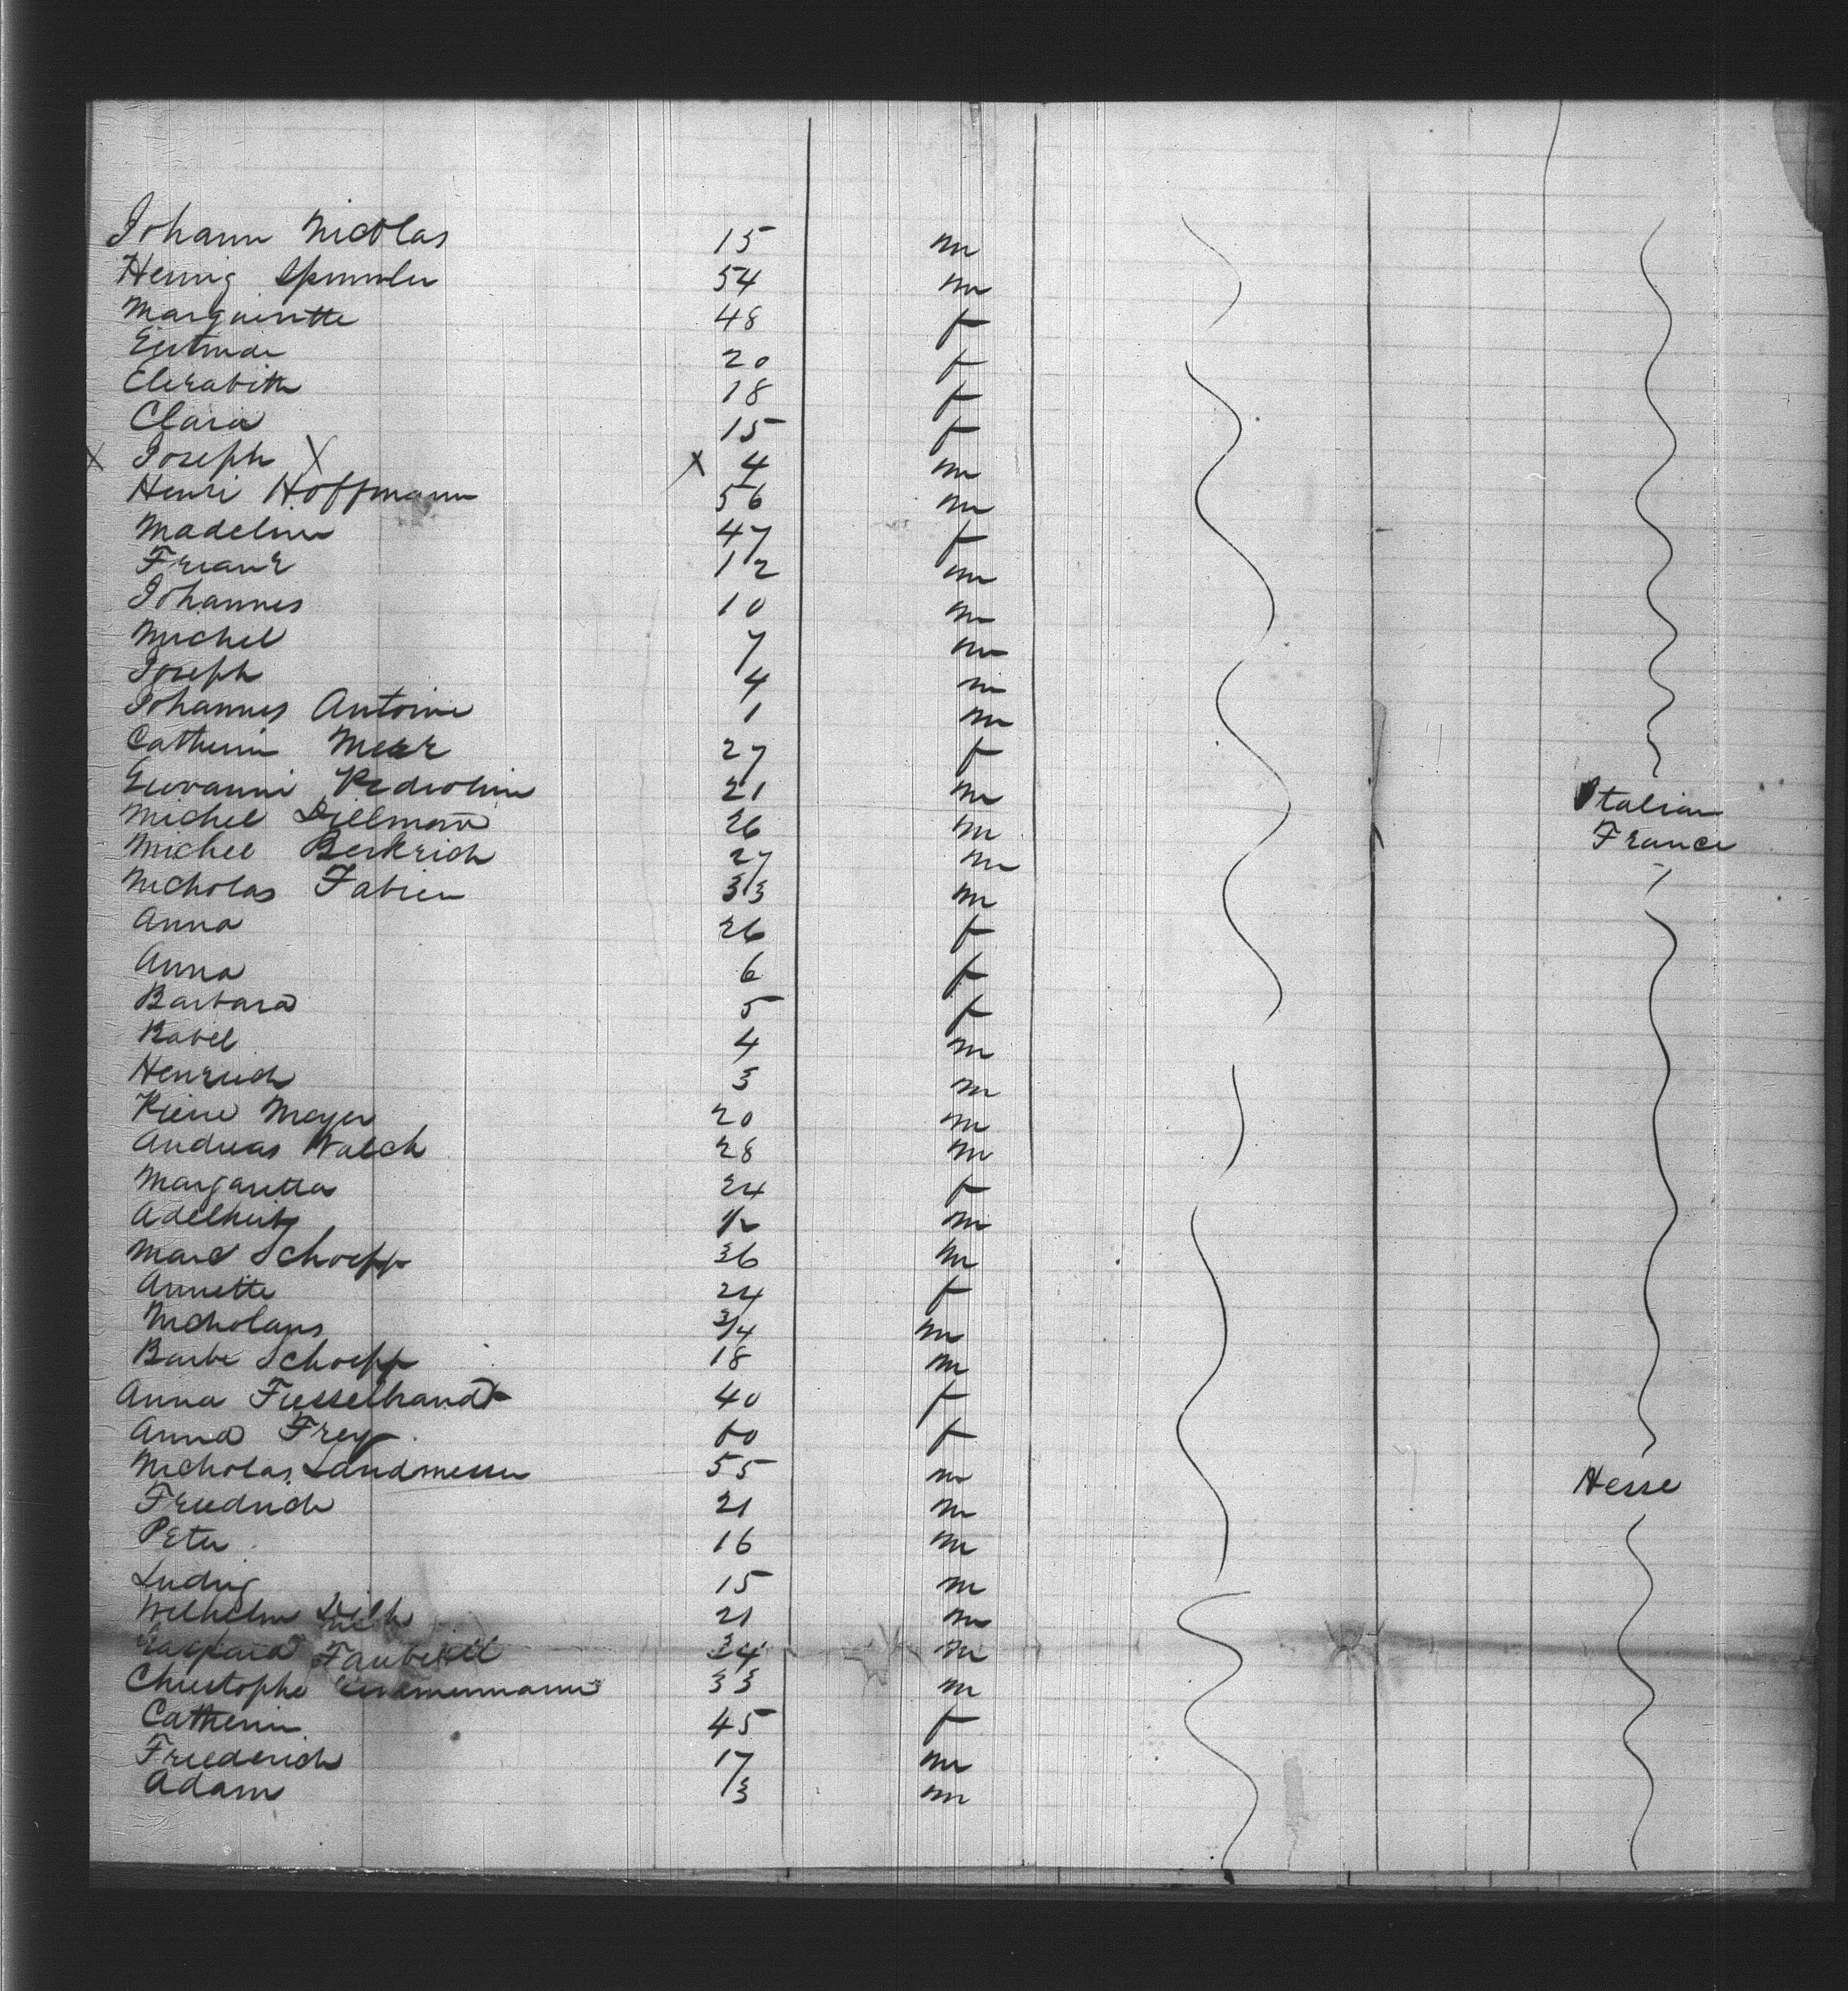 Johann Nicolas 15 m
Hennig Spimmler 54 m
Marguiritte 48 f
Gertrude 20 f
Elizabith 18 f
Clara 15 f
x Joseph x x 4 m
Henri Hoffmann 56 m
Madeline 47 f
Franz 12 m
Johannes 10 m
Michel 7 m
Joseph 4 m
Johannes Antoine 1 m
Catherin 27 f
Giovanni Pedrolini 21 m Italian
Michel Dillmann 26 m France
Michel Berkrich 27 m
Nicholas Fabien 33 m
Anna 26 f
Anna 6 f
Barbara 5 f
Babel 4 m
Henrich 3 m
Pierre Meyer 20 m
Andreas Walch 28 m
Margaretta 24 f
Adelheid 1/2 m
Marc Schoepp 36 m
Annette 24 f
Nicholaus 3/4 m
Barbe Schoepp 18 m
Anna Fusselbrandt 40 f
Anna Frey 60 f
Nicholas Landmesser 55 m Hesse
Friedrich 21 m
Peter 16 m
Ludwig 15 m
Wilhelm 21 m
34 m
Christophe 33 m
Catherin 45 f
Friederich 17 m
Adam 13 m